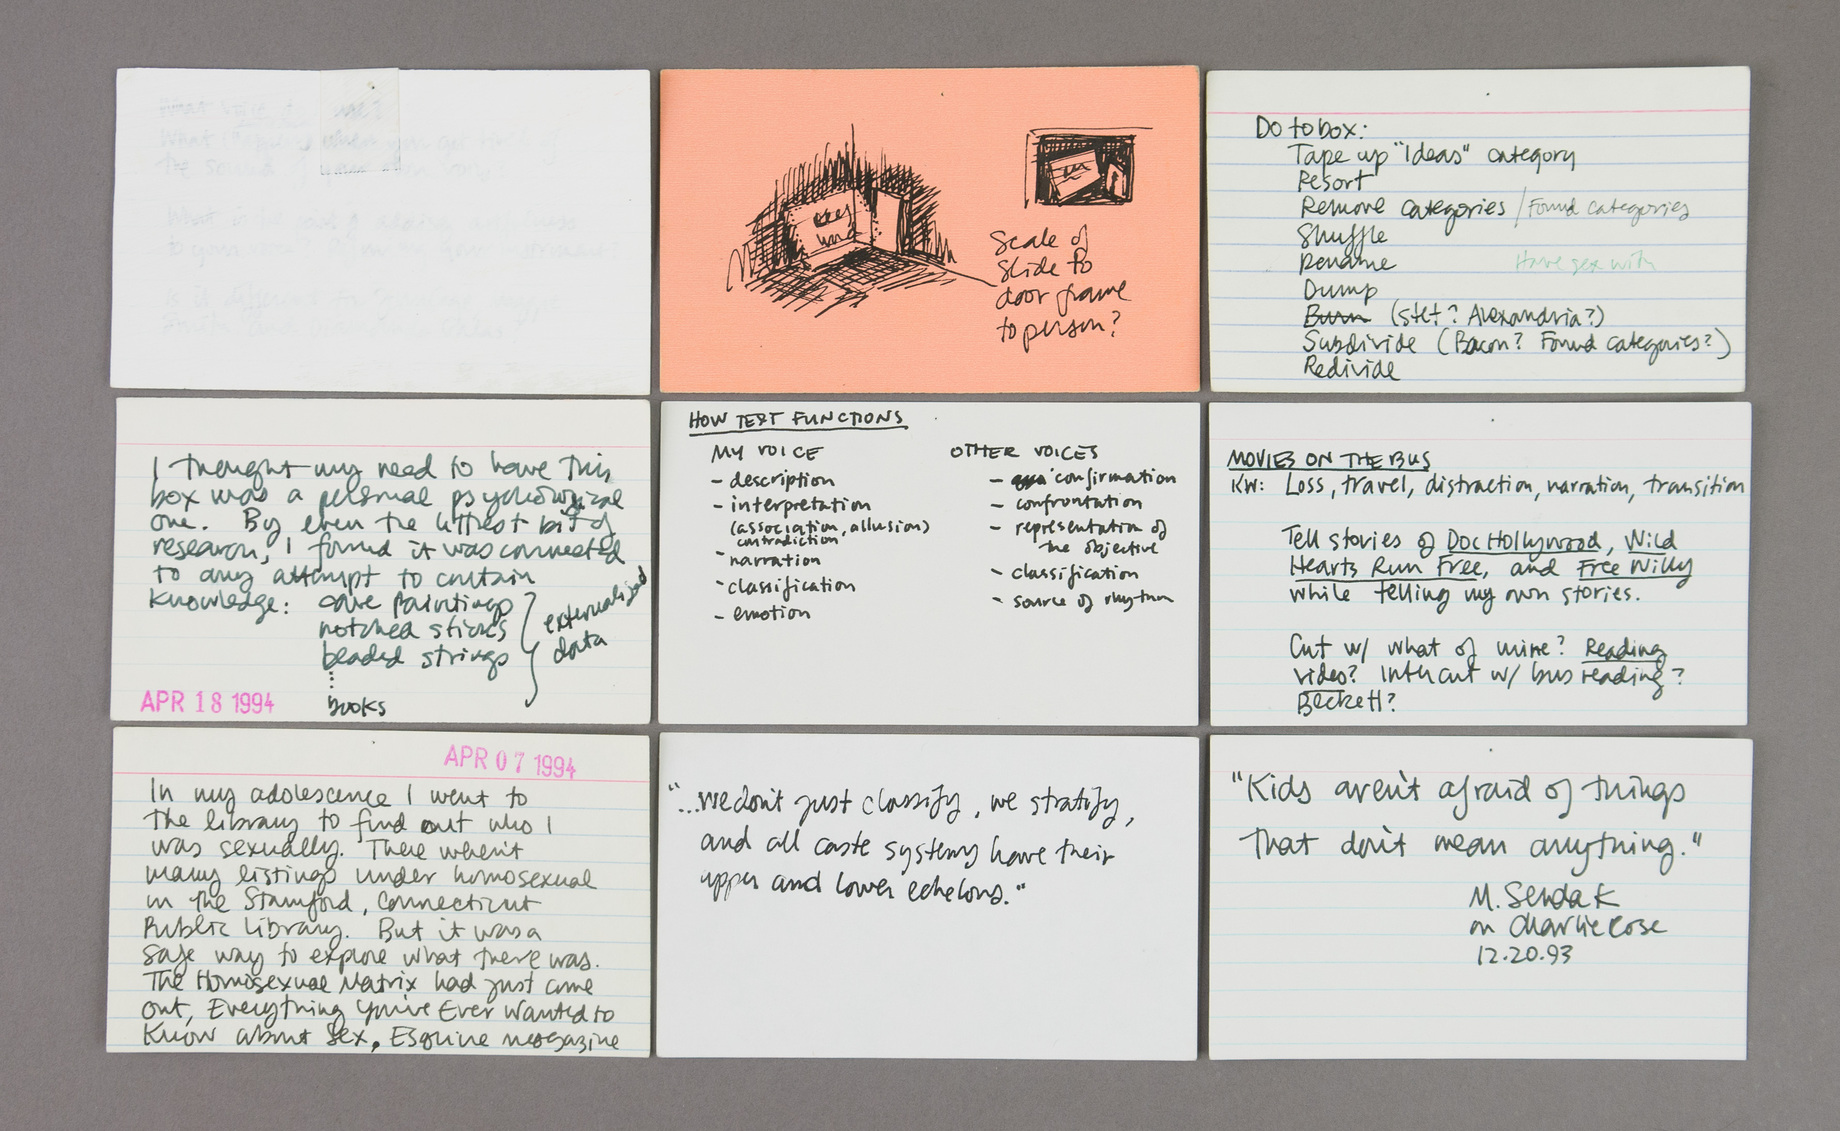 What
What when you get tired of
the sound of your own voice
What is the point of adding
to your
Is it different to
Scale of
slide to
door frame
to person?
Do to box:
Tape up "Ideas" category
Resort
Remove categories / Found categories
Shuffle
Rename Have sex with
Dump
Burn (stet? Alexandria?)
Subdivide (Bacon? Found categories?)
Redivide
I thought my need to have this
box was a personal psychological
one. By even the littlest bit of
research, I found it was connected
to any attempt to contain
knowledge: cave paintings
notched sticks
beaded strings
books
externalized
data
APR 18 1994
HOW TEXT FUNCTIONS
MY VOICE
- description
- interpretation
(association, allusion)
contradiction
- narration
- classification
- emotion
OTHER VOICES
- confirmation
- confrontation
- representation of
the objective
- classification
- source of rhythm
MOVIES ON THE BUS
KW: Loss, travel, distraction, narration, transition
Tell stories of Doc Hollywood, Wild
Hearts Run Free, and Free Willy
while telling my own stories.
Cut w/ what of mine? Reading
video? Intercut w/ bus reading?
Beckett?
APR 07 1994
In my adolescence I went to
the library to find out who I
was sexually. There weren't
many listings under homosexual
in the Stamford, Connecticut
Public Library. But it was a
safe way to explore what there was.
The Homosexual Matrix had just come
out, Everything You've Ever Wanted to
Know about Sex, Esquire magazine
"...we don't just classify, we stratify,
and all caste systems have their
upper and lower echelons."
"Kids aren't afraid of things
that don't mean anything."
M. Sendak
on Charlie Rose
12.20.93